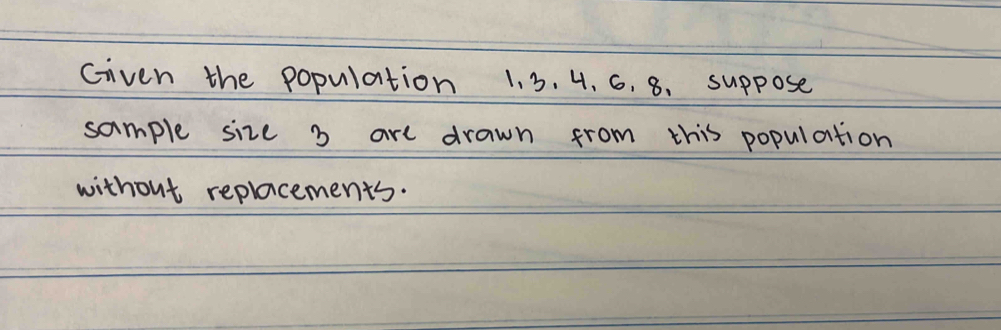 Given the population 1, 3, 4, 6, 8, suppose
sample size 3 are drawn from this population
without replacements.